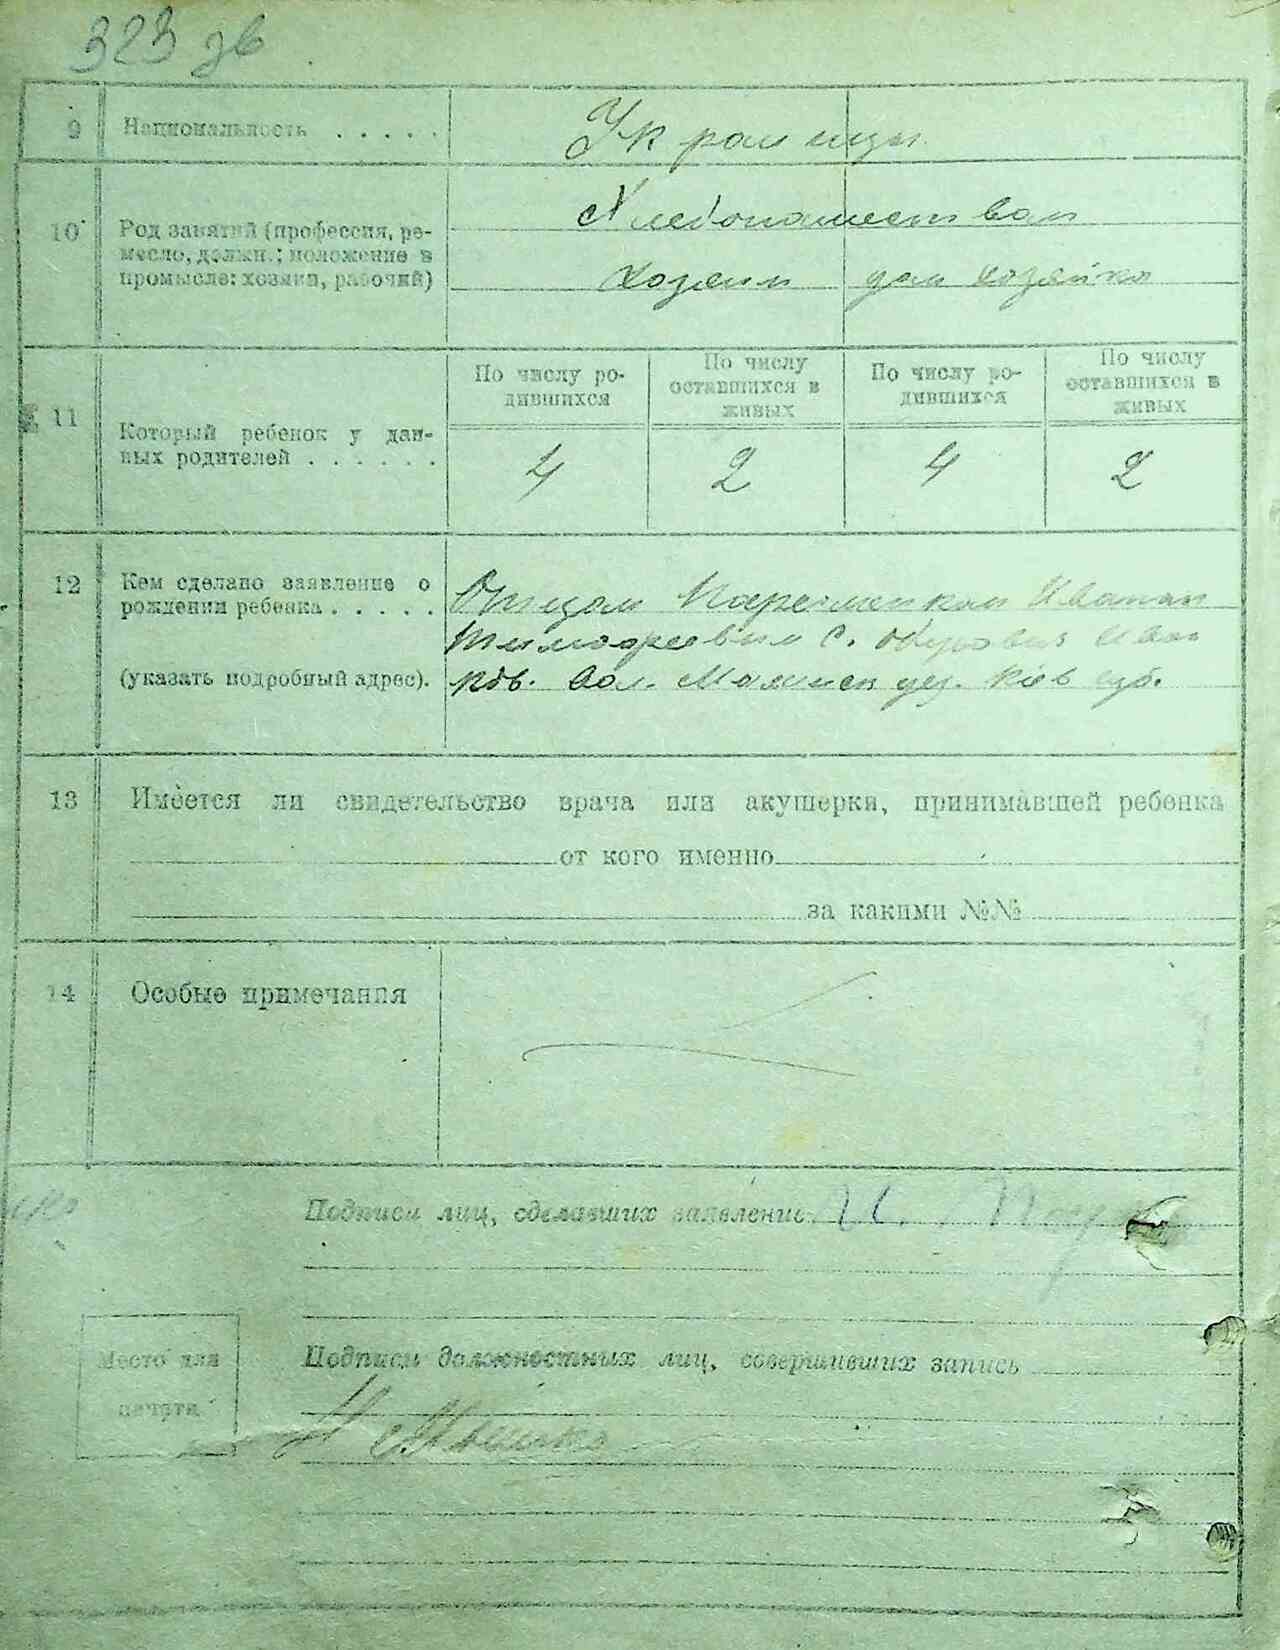 323 зв
9 Национальность . . . . .
Украинцы
10 Род занятий (профессия, ре-
месло, должн.; положение в
промысле: хозяин, рабочий)
Хлебопашеством
Хозяин дом хозяйка
11 Который ребенок у дан-
ных родителей . . . . . .
По числу ро-
дившихся
По числу
оставшихся в
живых
По числу ро-
дившихся
По числу
оставшихся в
живых
4 2 4 2
12 Кем сделано заявление о
рождении ребенка . . . . .
(указать подробный адрес).
Отцом Иваном
Тимофеевым с.
вол. уез. Киев губ.
13 Имеется ли свидетельство врача или акушерки, принимавшей ребенка
от кого именно
за какими №№
14 Особые примечания
Подписи лиц, сделавших заявление И.
Место для
печати
Подписи должностных лиц, совершивших запись